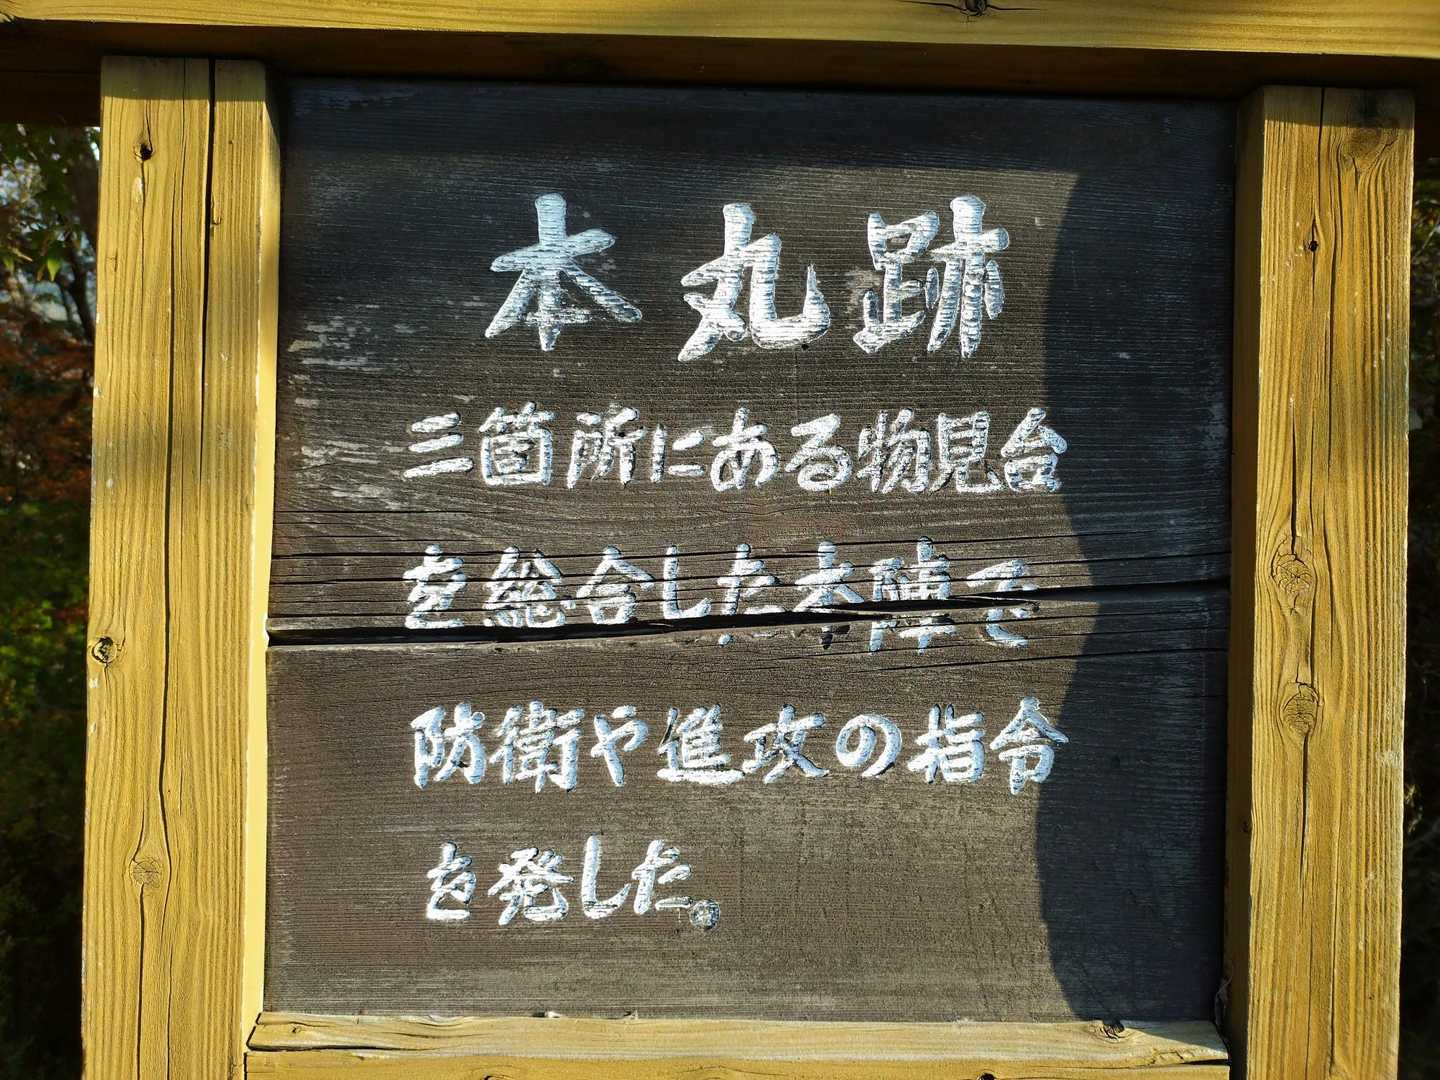 本丸跡
三箇所にある物見台
を総合した本陣で
防衛や進攻の指令
を発した。